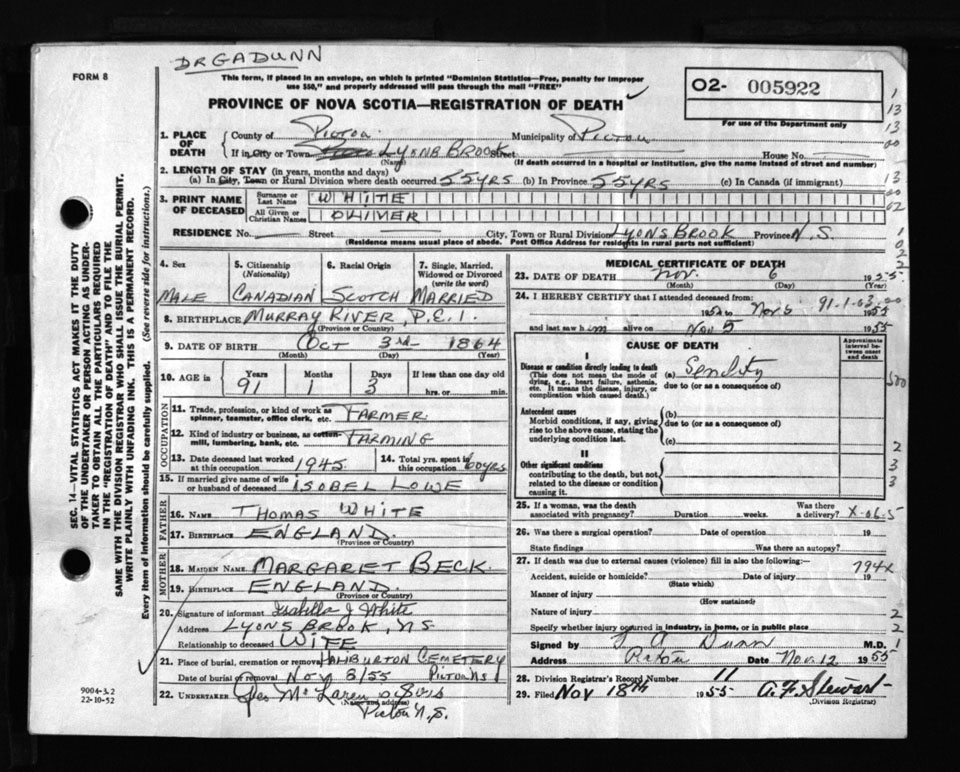 DR G A DUNN
FORM 8
This form, if placed in an envelope, on which is printed "Dominion Statistics—Free, penalty for improper
use $50," and properly addressed will pass through the mail "FREE"
PROVINCE OF NOVA SCOTIA—REGISTRATION OF DEATH
O2- 005922
For use of the Department only
1. PLACE OF DEATH
County of Pictou Municipality of Pictou
If in City or Town LYONS BROOK Street House No.
(Name) (If death occurred in a hospital or institution, give the name instead of street and number)
2. LENGTH OF STAY (in years, months and days)
(a) In City, Town or Rural Division where death occurred 55 YRS (b) In Province 55 YRS (c) In Canada (if immigrant)
3. PRINT NAME OF DECEASED
Surname or Last Name WHITE
All Given or Christian Names OLIVER
RESIDENCE No. Street City, Town or Rural Division LYONS BROOK Province N.S.
(Residence means usual place of abode. Post Office Address for residents in rural parts not sufficient)
4. Sex
MALE
5. Citizenship
(Nationality)
CANADIAN
6. Racial Origin
SCOTCH
7. Single, Married,
Widowed or Divorced
(write the word)
MARRIED
8. BIRTHPLACE MURRAY RIVER, P.E.I.
(Province or Country)
9. DATE OF BIRTH OCT 3RD 1864
(Month) (Day) (Year)
10. AGE in Years Months Days If less than one day old
91 1 3 hrs. or min.
OCCUPATION
11. Trade, profession, or kind of work as
spinner, teamster, office clerk, etc. FARMER
12. Kind of industry or business, as cotton-
mill, lumbering, bank, etc. FARMING
13. Date deceased last worked
at this occupation 1945
14. Total yrs. spent in
this occupation 60 yrs
15. If married give name of wife
or husband of deceased ISOBEL LOWE
FATHER
16. NAME THOMAS WHITE
17. BIRTHPLACE ENGLAND.
(Province or Country)
MOTHER
18. MAIDEN NAME MARGARET BECK.
19. BIRTHPLACE ENGLAND.
(Province or Country)
20. Signature of informant Isabella J White
Address LYONS BROOK, N.S
Relationship to deceased WIFE
21. Place of burial, cremation or removal HALIBURTON CEMETERY
Date of burial or removal Nov 8/55 PICTOU N S
22. UNDERTAKER Geo McLaren & Sons
(Name and address)
Pictou N.S.
9004-3.2
22-10-52
MEDICAL CERTIFICATE OF DEATH
23. DATE OF DEATH Nov. 6 1955
(Month) (Day) (Year)
24. I HEREBY CERTIFY that I attended deceased from
91-1-03-00
to Nov 6 1955
and last saw him alive on Nov 5 1955
CAUSE OF DEATH
Approximate
interval between
onset
and death
I
Disease or condition directly leading to death
(This does not mean the mode of
dying, e.g., heart failure, asthenia,
etc. It means the disease, injury, or
complication which caused death.)
(a) Senility
due to (or as a consequence of)
Antecedent causes
Morbid conditions, if any, giving
rise to the above cause, stating the
underlying condition last.
(b)
due to (or as a consequence of)
(c)
II
Other significant conditions
contributing to the death, but not
related to the disease or condition
causing it.
25. If a woman, was the death
associated with pregnancy? Duration weeks. Was there a delivery? X-06-5
26. Was there a surgical operation? Date of operation 19
State findings Was there an autopsy?
27. If death was due to external causes (violence) fill in also the following:— 794X
Accident, suicide or homicide? Date of injury 19
(State which)
Manner of injury
(How sustained)
Nature of injury
Specify whether injury occurred in industry, in home, or in public place
Signed by G A Dunn M.D.
Address Pictou Date Nov. 12 1955
28. Division Registrar's Record Number 11
29. Filed Nov 18th 1955 A. F. Stewart
(Division Registrar)
SEC. 14—VITAL STATISTICS ACT MAKES IT THE DUTY
OF THE UNDERTAKER OR PERSON ACTING AS UNDER-
TAKER TO OBTAIN ALL THE PARTICULARS REQUIRED
IN THE "REGISTRATION OF DEATH" AND TO FILE THE
SAME WITH THE DIVISION REGISTRAR WHO SHALL ISSUE THE BURIAL PERMIT.
WRITE PLAINLY WITH UNFADING INK. THIS IS A PERMANENT RECORD.
Every item of information should be carefully supplied. (See reverse side for instructions.)